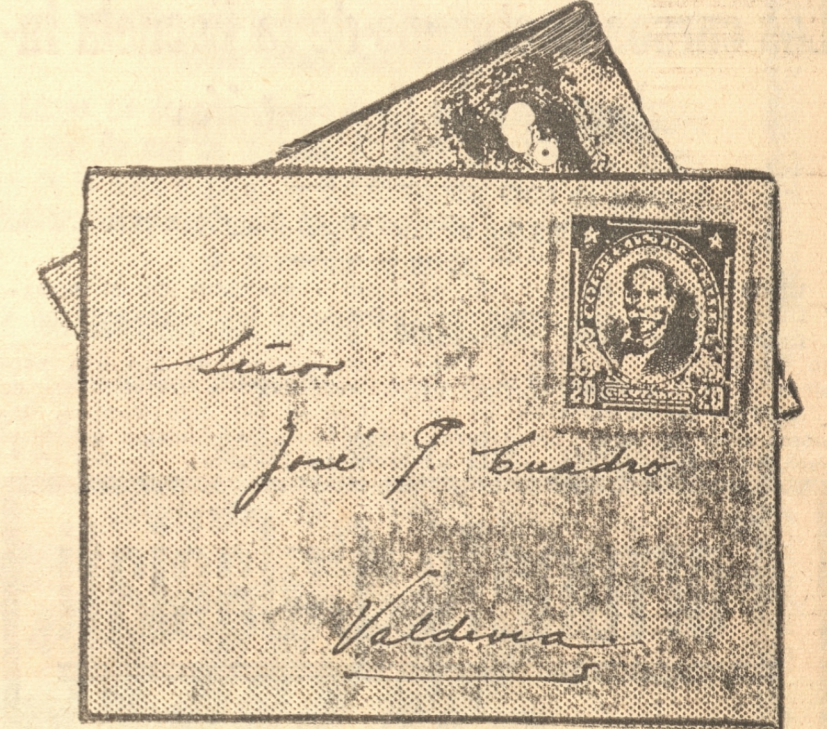 CORREOS DE CHILE
20 CENTAVOS 20
Señor
José P. Cuadro
Valdivia